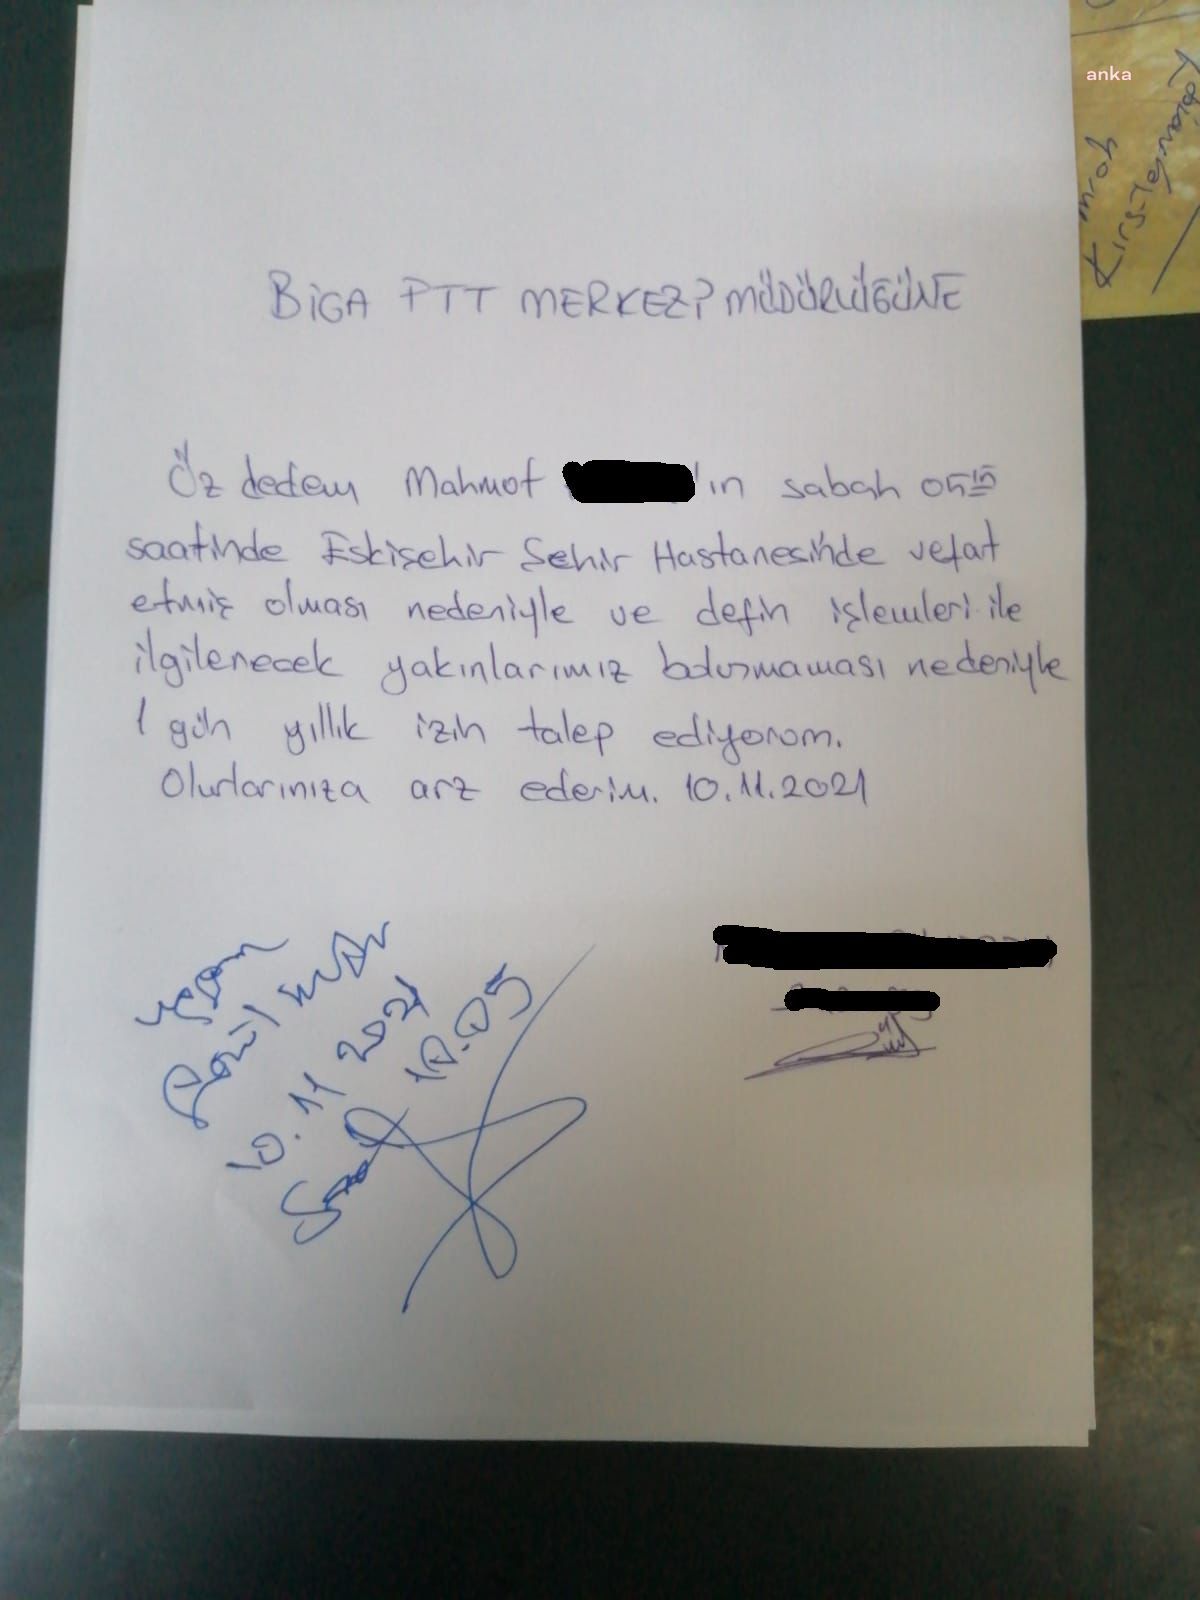 anka
BİGA PTT MERKEZİ MÜDÜRLÜĞÜNE
Öz dedem Mahmut 'ın sabah 05:15
saatinde Eskişehir Şehir Hastanesinde vefat
etmiş olması nedeniyle ve defin işlemleri ile
ilgilenecek yakınlarımız bulunmaması nedeniyle
1 gün yıllık izin talep ediyorum.
Olurlarınıza arz ederim. 10.11.2021
10.11 2021
Saat 10.05